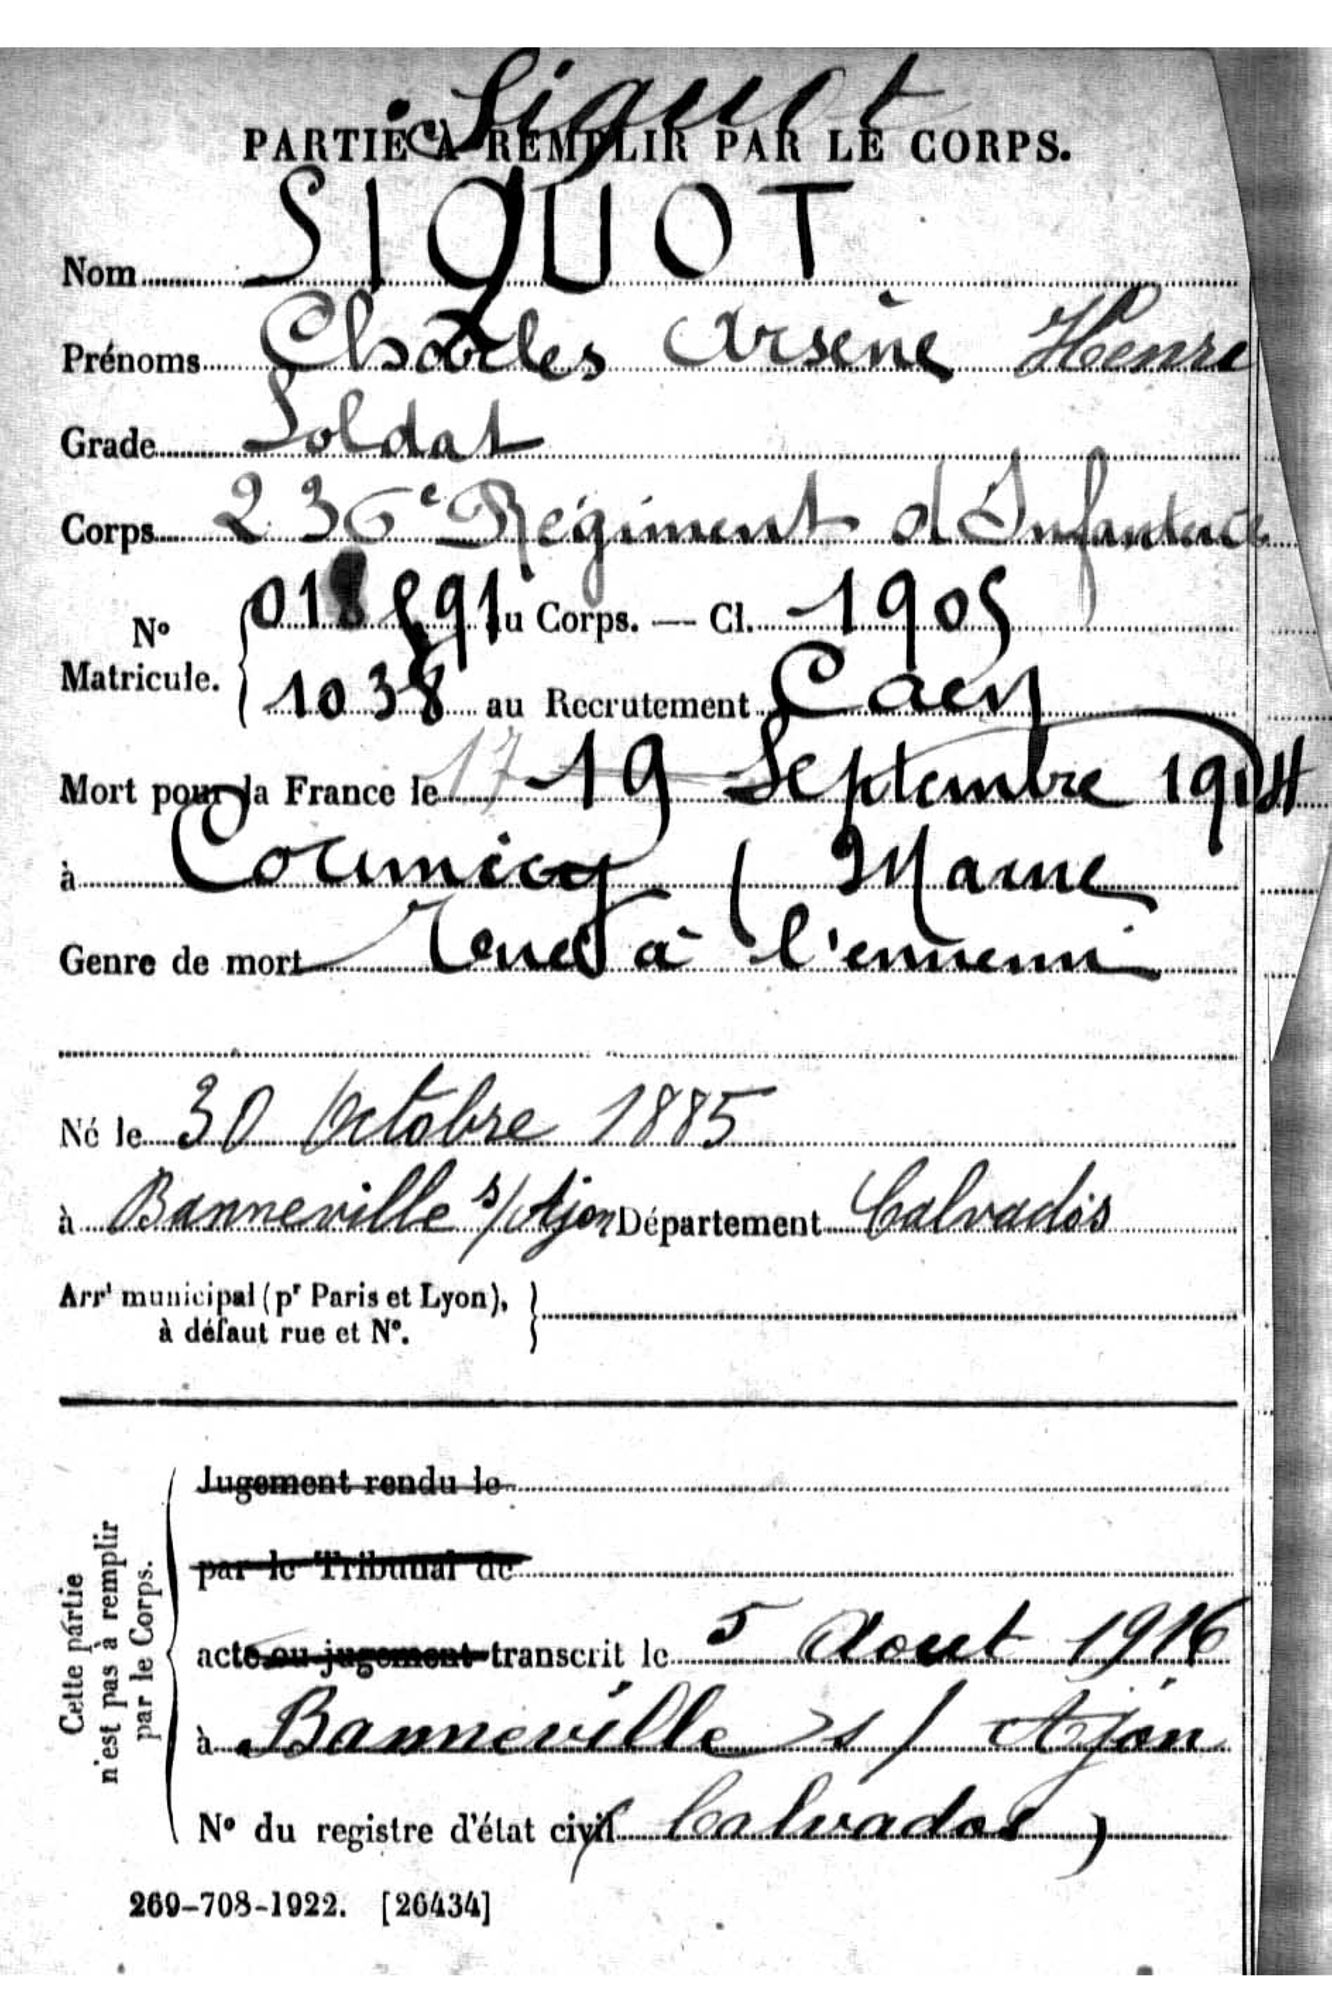 Siquot
PARTIE À REMPLIR PAR LE CORPS.
Nom SIQUOT
Prénoms Charles Arsène Henri
Grade Soldat
Corps 236e Régiment d'Infanterie
No Matricule. 01 891 au Corps. — Cl. 1905
1038 au Recrutement Caen
Mort pour la France le 17 19 Septembre 1914
à Cormicy (Marne
Genre de mort Tué à l'ennemi
Né le 30 Octobre 1885
à Banneville s/Ajon Département Calvados
Arrt municipal (pr Paris et Lyon),
à défaut rue et No.
Cette partie
n'est pas à remplir
par le Corps.
Jugement rendu le
par le Tribunal de
acte ou jugement transcrit le 5 Aout 1916
à Banneville s/ Ajon
No du registre d'état civil (Calvados)
269-708-1922. [26434]